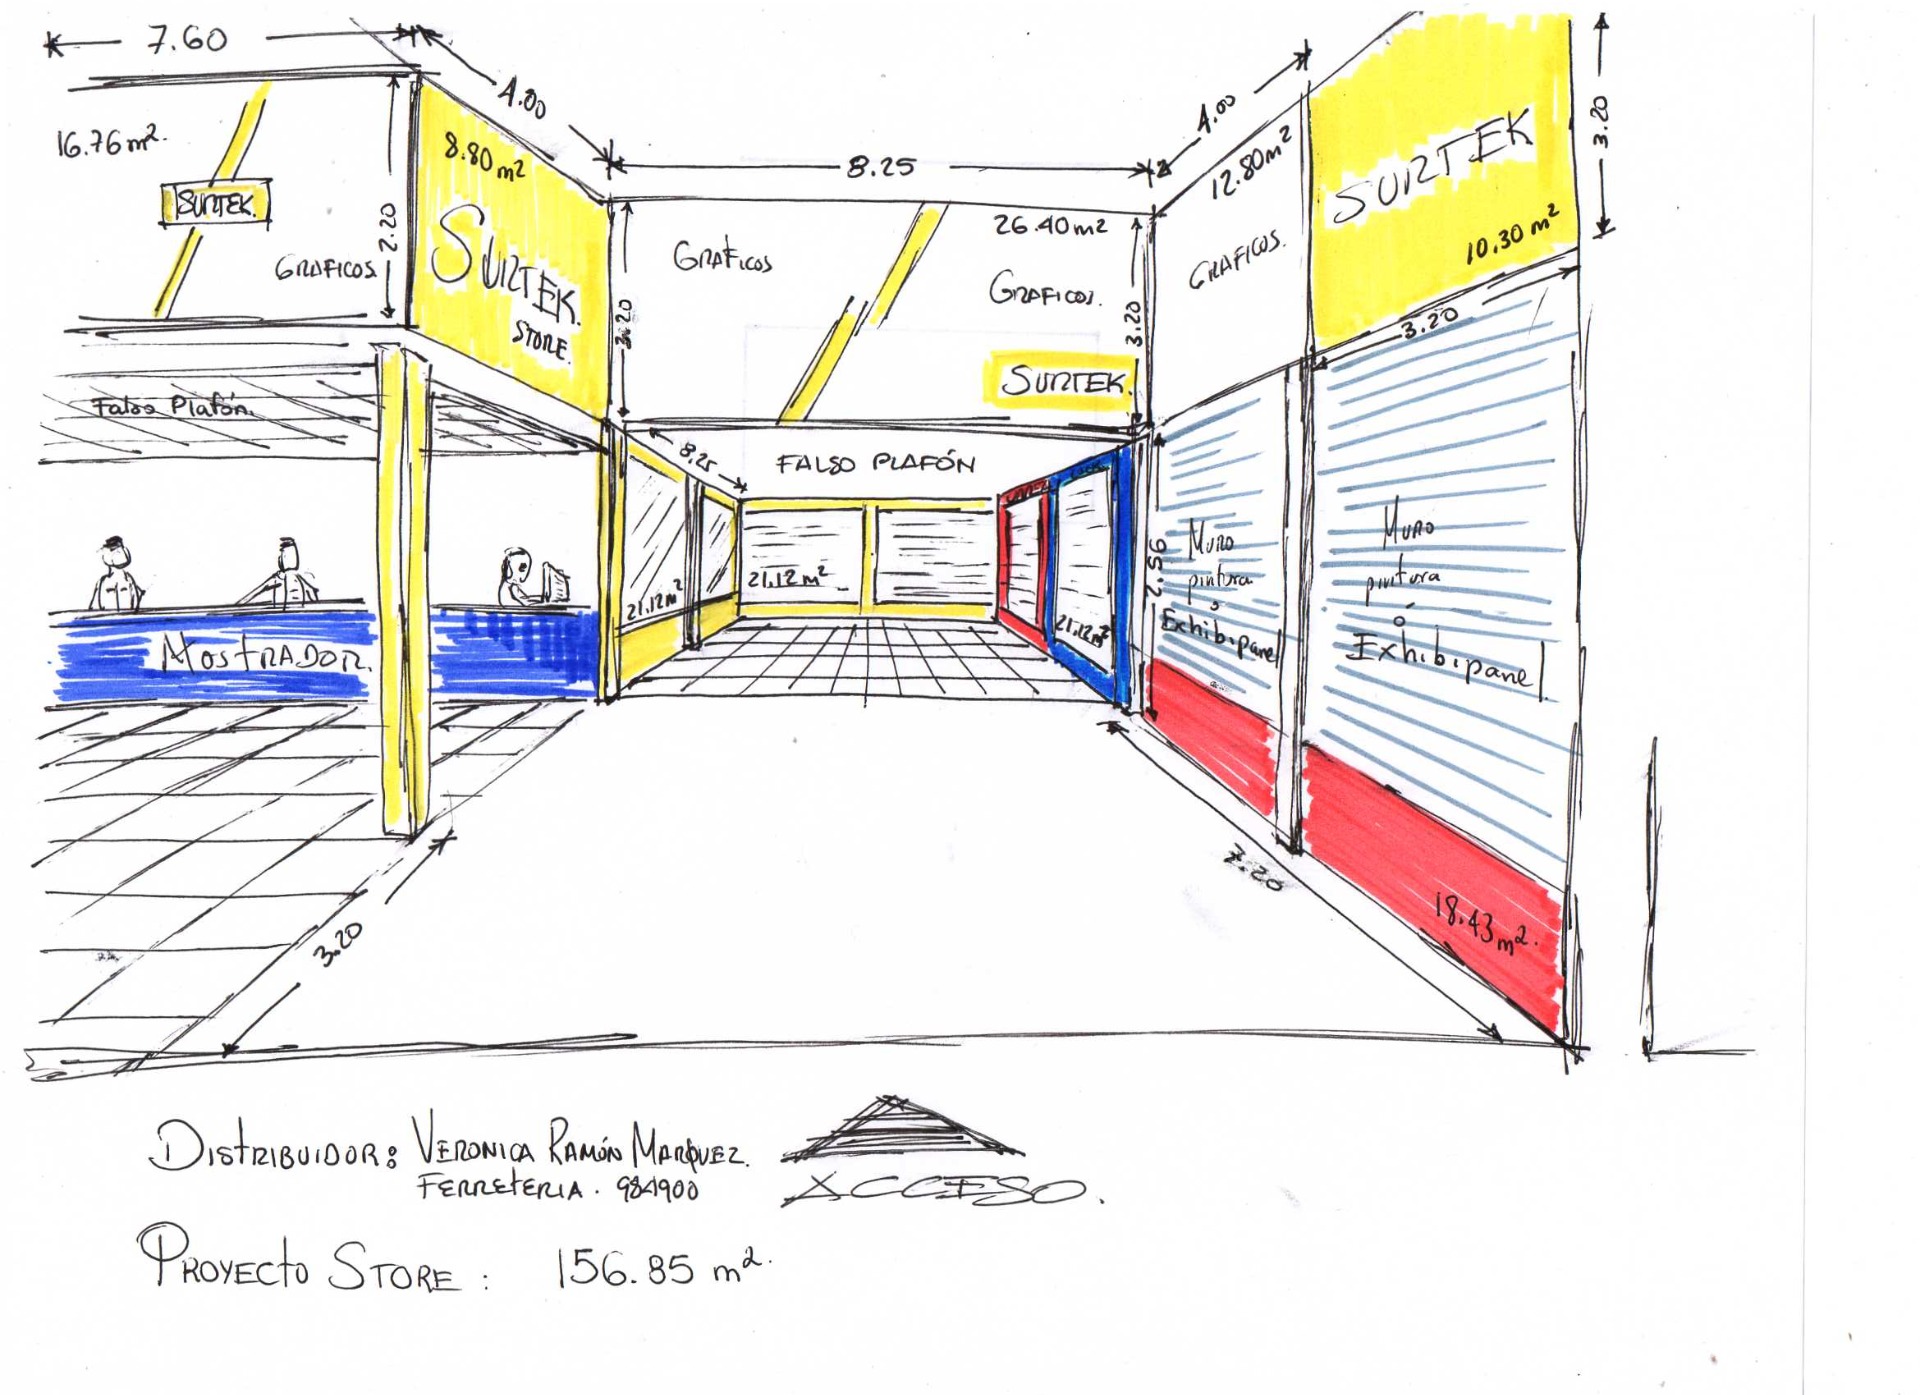 7.60
4.00
8.25
4.00
3.20
16.76 m².
SURTEK.
GRAFICOS.
2.20
8.80 m²
SURTEK.
STORE.
3.20
GRAFICOS
26.40 m²
GRAFICOS.
3.20
SURTEK.
12.80 m²
GRAFICOS.
SURTEK
10.30 m²
3.20
Falso Plafón.
8.25
FALSO PLAFÓN
21.12 m²
21.12 m²
21.12 m²
2.56
Muro
pintura
ó
Exhibipanel
Muro
pintura
ó
Exhibipanel
MOSTRADOR.
3.20
7.20
18.43 m².
DISTRIBUIDOR: VERONICA RAMÓN MARQUEZ.
FERRETERIA. 984900
ACCESO.
PROYECTO STORE: 156.85 m².